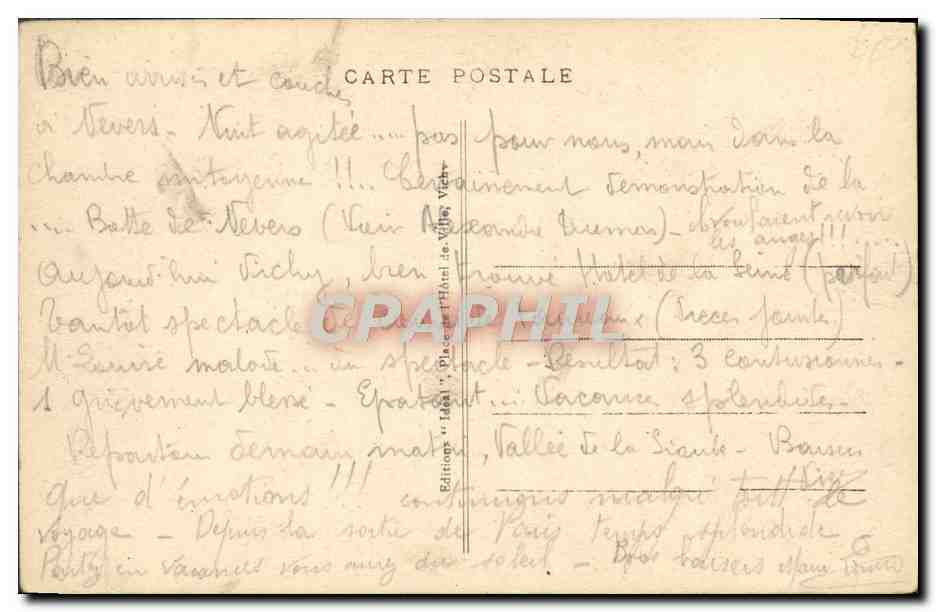 CARTE POSTALE
Bien arrivés et couchés
à Nevers - Nuit agitée .... pas pour nous, mais dans la
chambre mitoyenne !!... Certainement démonstration de la
.... Botte de Nevers (Voir Alexandre Dumas) - 
les anges !!! ....
Aujourd'hui Vichy, bien trouvé Hotel de la Seine (parfait)
Tantôt spectacle de (Pieces jointes)
Mt Louise malade... un spectacle - Résultat : 3 contusionnes -
1 grièvement blessé - Epatant... Vacances splendides -
Repartons demain matin, Vallée de la - Baisers
Que d'émotions !!! continuons malgré tout le
voyage - Depuis la sortie de Paris temps splendide
Partez en vacances vous aurez du soleil - Bons baisers
Editions " Idéal ", Place de l'Hôtel de Ville, Vichy
CPAPHIL